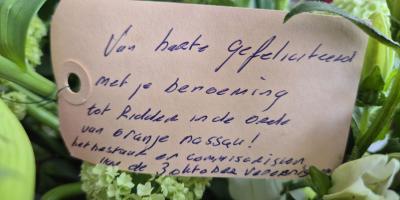 Van harte gefeliciteerd
met je benoeming
tot Ridder in de orde
van oranje nassau!
het bestuur en commissarissen
van de 3 oktober